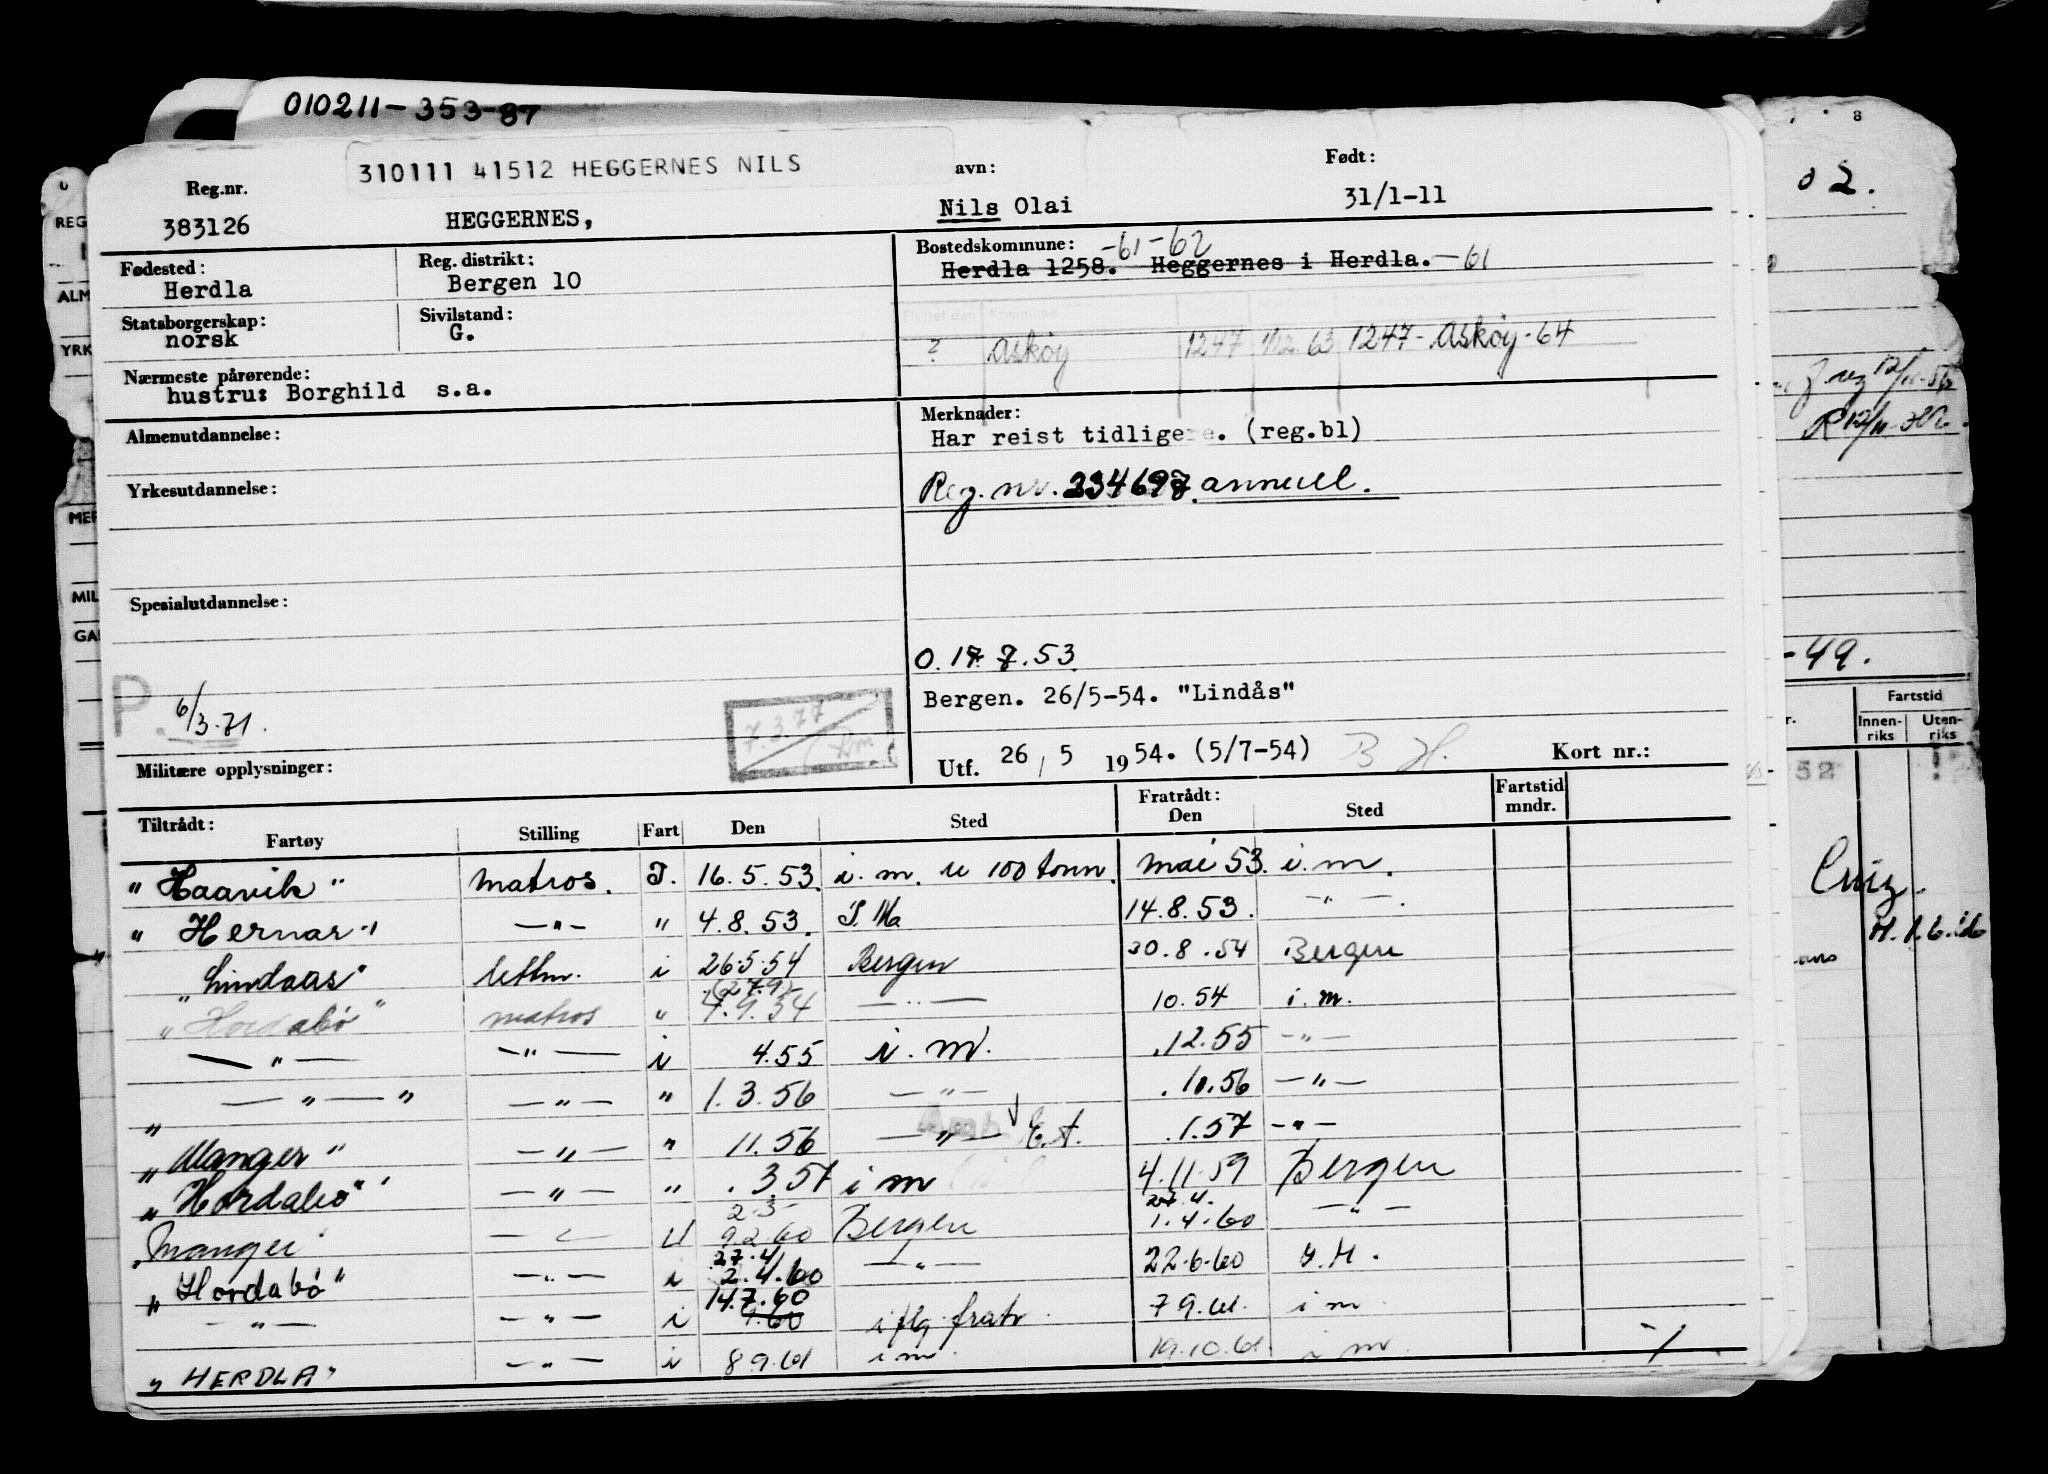 010211-353-87
310111 41512 HEGGERNES NILS
avn:
Født:
Reg.nr.
383126
HEGGERNES,
Nils Olai
31/1-11
Fødested:
Herdla
Reg. distrikt:
Bergen 10
Bostedskommune: -61-62
Herdla 1258. Heggernes i Herdla. -61
Statsborgerskap:
norsk
Sivilstand:
G.
Flyttet den Kommune
? Askøy 1247 1/12 63 1247- Askøy-64
Nærmeste pårørende:
hustru: Borghild s.a.
Almenutdannelse:
Merknader:
Har reist tidligere. (reg.bl)
Yrkesutdannelse:
Reg. nr. 234697 annull.
Spesialutdannelse:
O. 17. 7. 53
P. 6/3.71.
7.3.77
Bergen. 26/5-54. "Lindås"
Militære opplysninger:
Utf. 26 / 5 1954. (5/7-54) B H. Kort nr.:
Tiltrådt: Fartøy Stilling Fart Den Sted Fratrådt: Den Sted Fartstid mndr.
"Haavik" matros. I. 16.5.53. i. m. u 100 tonn. mai 53. i. m.
"Hernar" —"— " 4.8.53. 14.8.53. —"—.
"Lindaas" lettm. i 26.5.54 Bergen 30.8.54 Bergen
(27.9)
"Hordabø" matros " 4.9.54 —"— 10.54 i. m.
—"— —"— i 4.55 i. m. .12.55 —"—
—"—" —"— " 1.3.56 —"— .10.56 —"—
"Manger" —"— " 11.56 —"— E.A. .1.57 —"—
"Hordabø" —"— " .3.57 i m 4.11.59 Bergen
2.3 27.4.
"Manger" — U 9.2.60 Bergen 1.4.60 —"—
27.4
"Hordabø" —"— i 2.4.60 —"— 22.6.60 I. M.
14.7.60
—"— —"— i 7.60 i flg. fratr. 7 9.61. i m
"HERDLA" —"— i 8 9.61 i m. 19.10.61 i m.
02.
-49.
Fartstid
Innen-riks
Uten-riks
52
REG
ALM
YRK
MER
MIL
GA